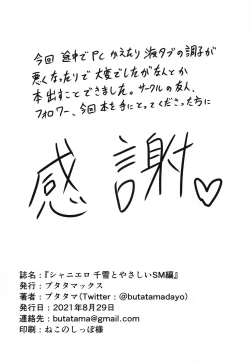 今回 途中でPCかえたり液タブの調子が
悪くなったりで大変でしたがなんとか
本出すことできました。サークルの友人、
フォロワー、今回本を手にとってくださった方に
感謝♡
誌名：『シャニエロ 千雪とやさしいSM編』
発行：ブタタマックス
著者：ブタタマ(Twitter：@butatamadayo)
発行日：2021年8月29日
連絡先：butatama@gmail.com
印刷：ねこのしっぽ様